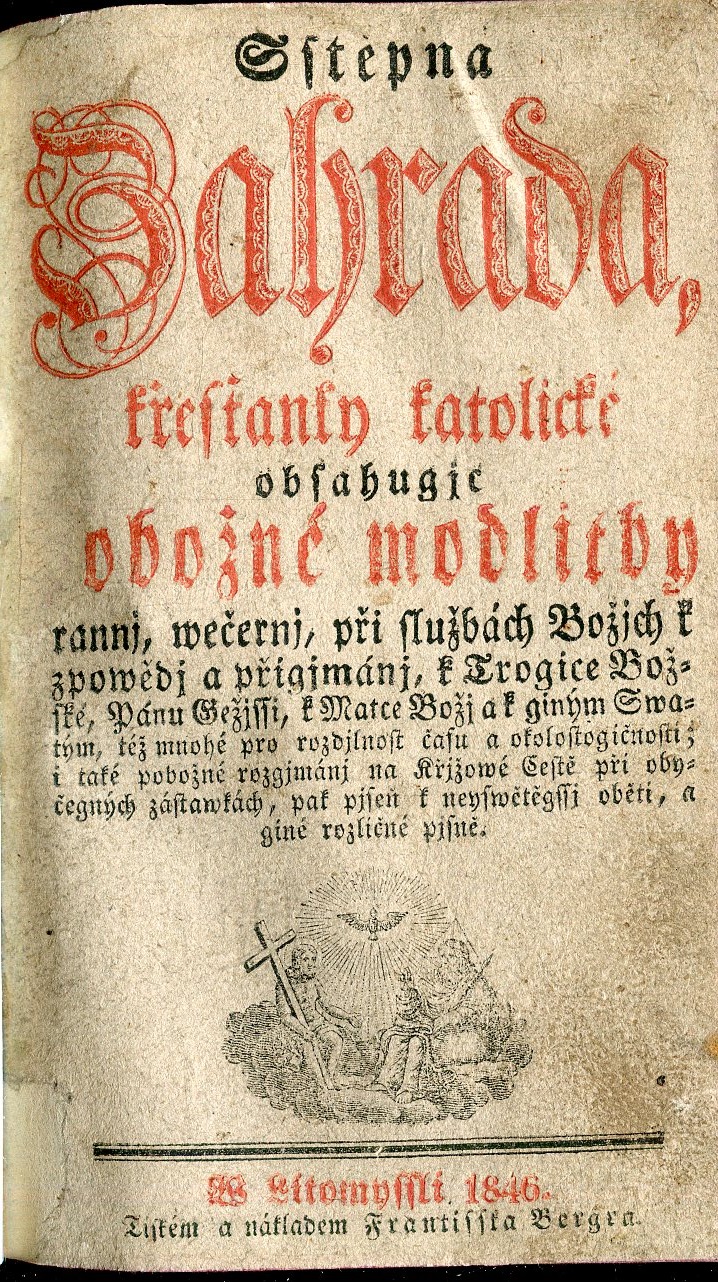 Sstěpná
Zahrada,
křesťanky katolické
obsahugjc
obožné modlitby
rannj, wečernj, při službách Božjch k
zpowědj a přigjmánj, k Trogice Bož-
ské, Pánu Gežjssi, k Matce Božj a k giným Swa-
tým, též mnohé pro rozdjlnost času a okolostogičnosti;
i také pobožné rozgjmánj na Křjžowé Cestě při oby-
čegných zástawkách, pak pjseň k neyswětěgssj oběti, a
giné rozličné pjsně.
W Litomyssli 1846.
Tiském a nákladem Frantisska Bergra.